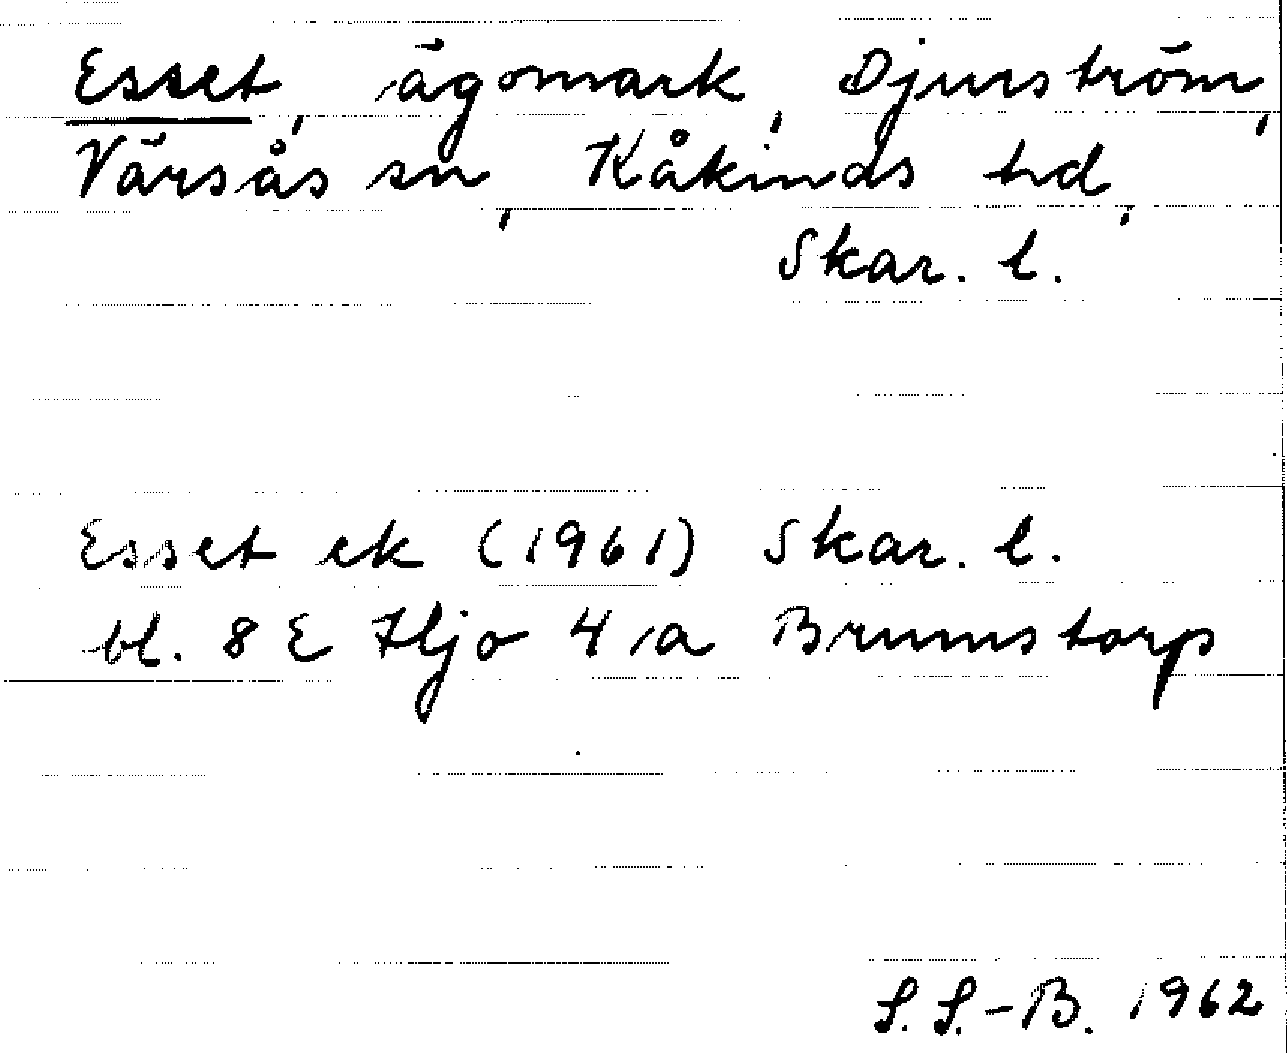 Esset, ägomark, Djurström,
Värsås sn, Kåkinds hd,
Skar. l.
Esset ek (1961) Skar. l.
bl. 8 E Hjo 4 a Brumstorp
S. S.-B. 1962